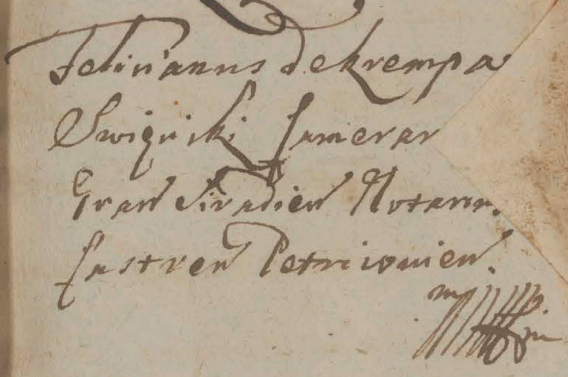 Felicianus de Krempa
Swięcicki Camerar
Gran Siradien Notariu
Castren Petricovien.
mpp